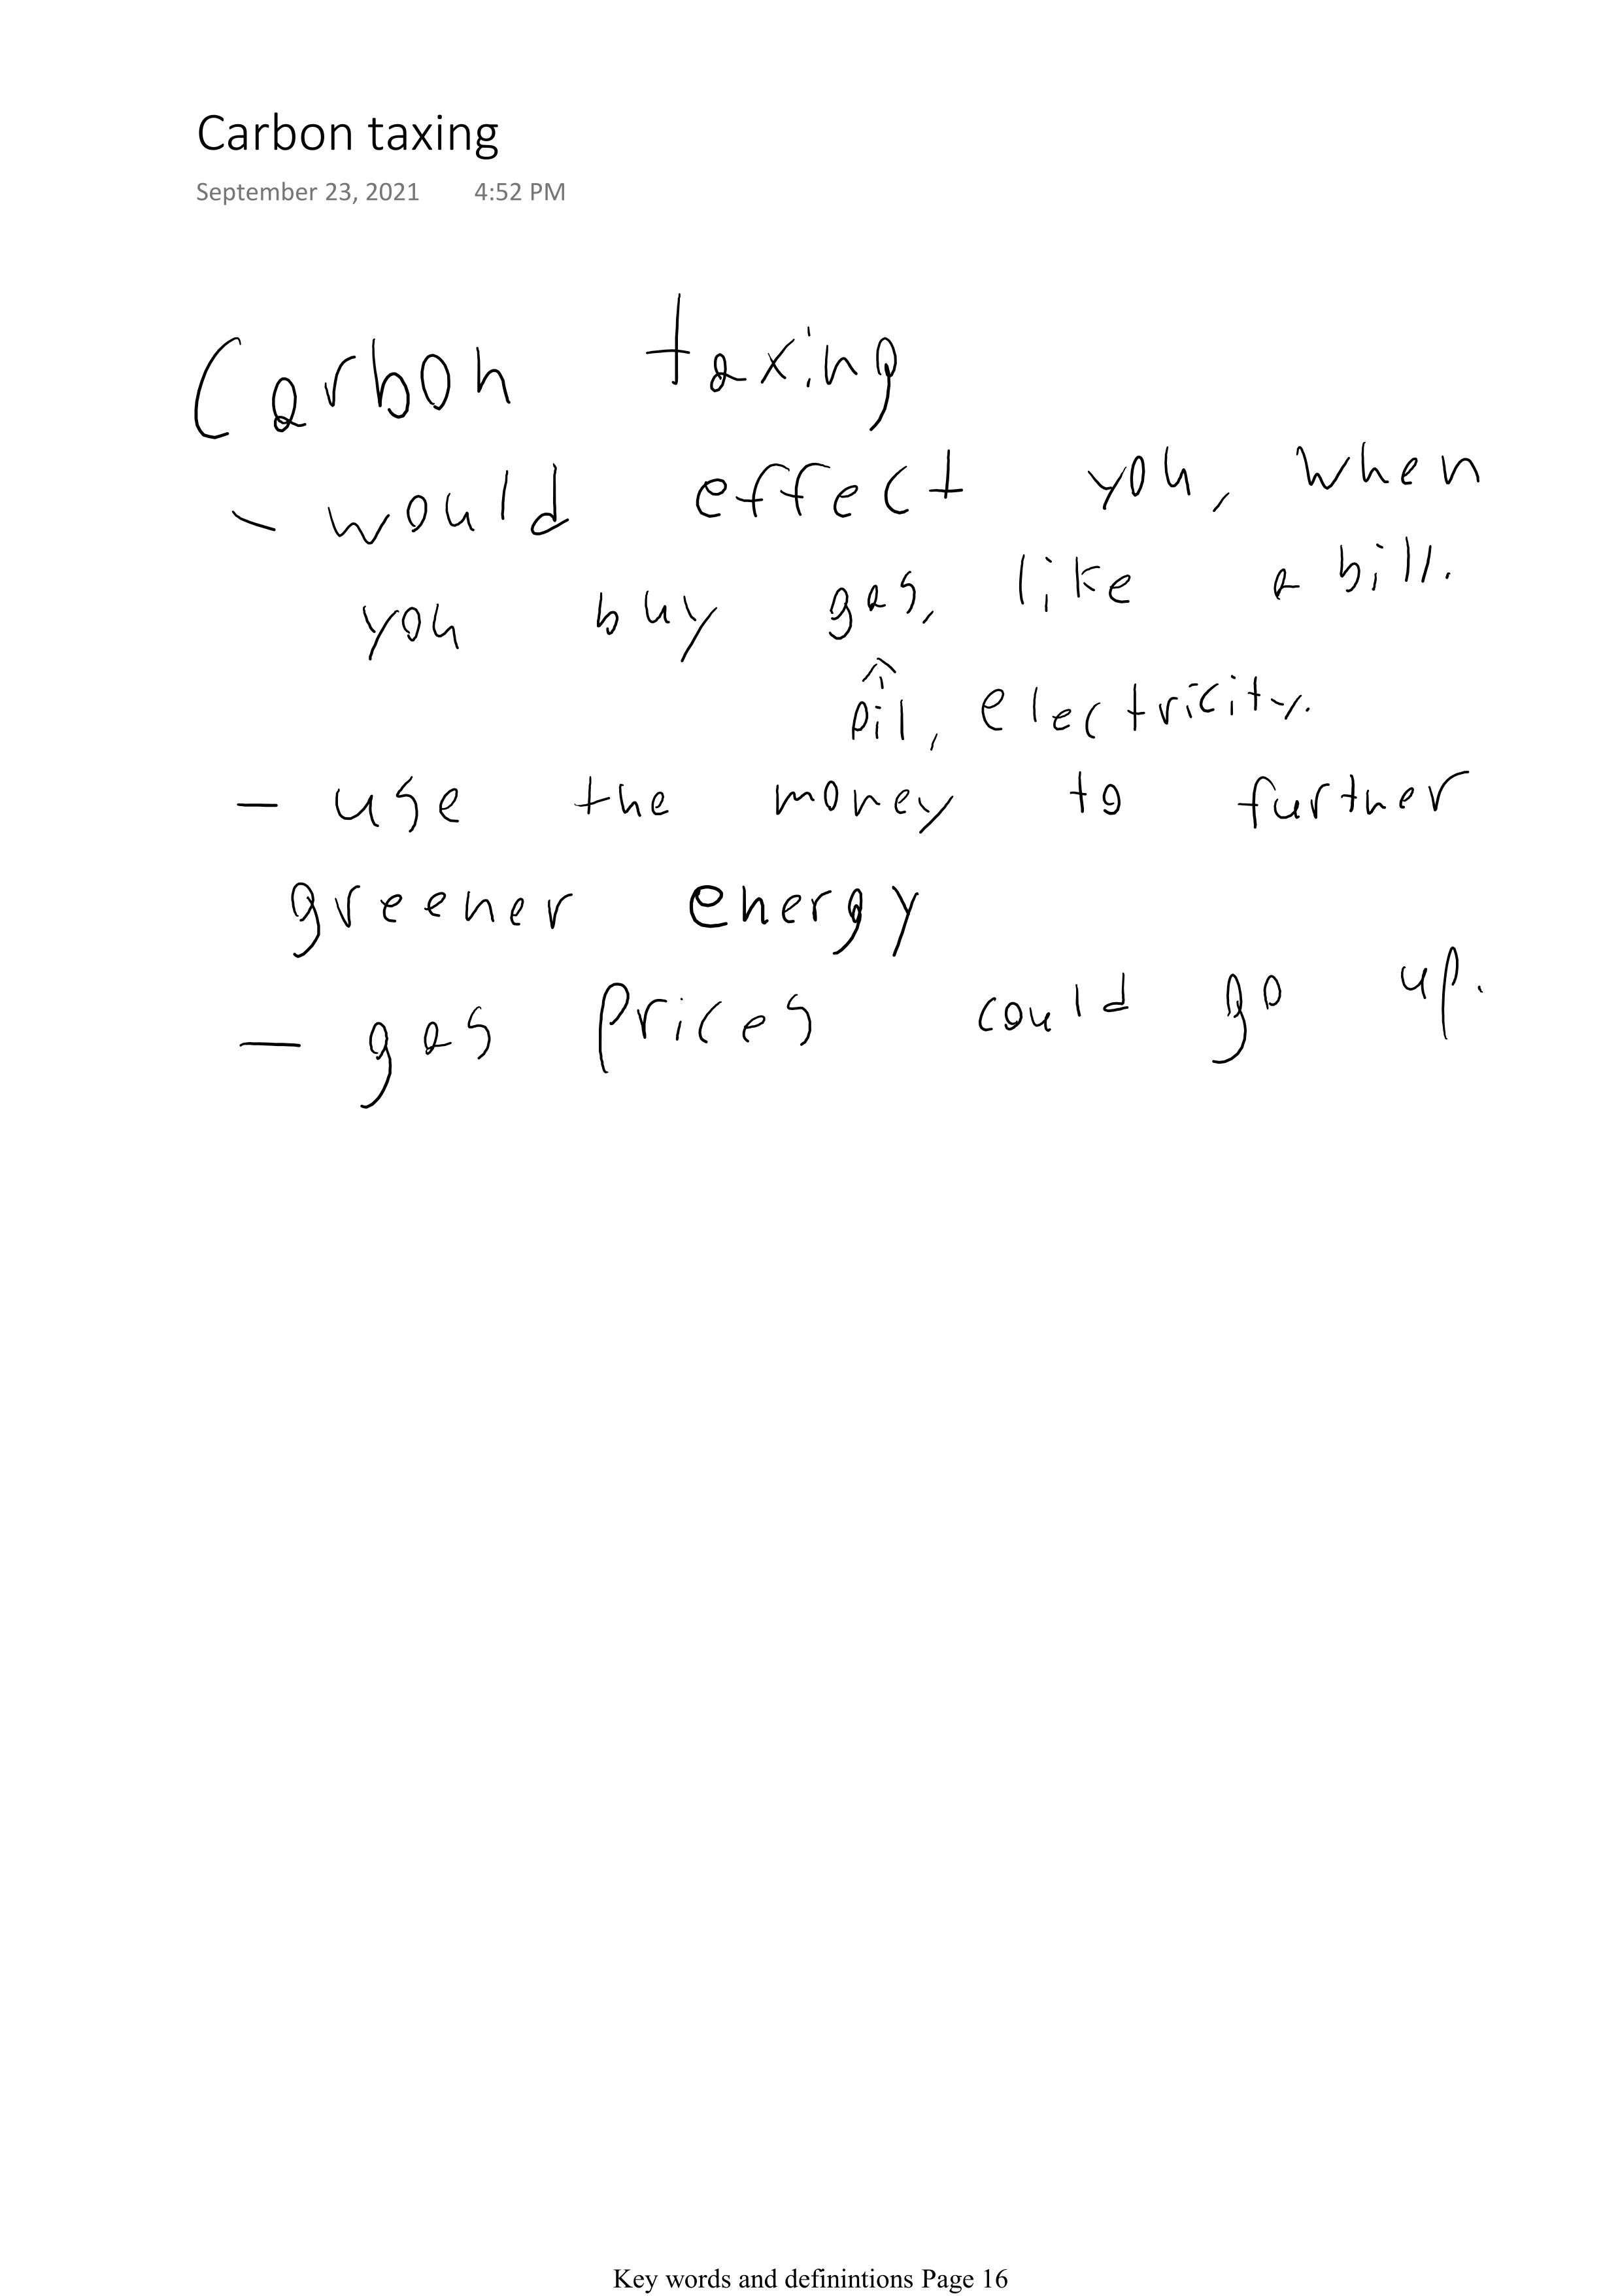 Carbon taxing
September 23, 2021 4:52 PM
Carbon taxing
- would effect you, when
you buy gas, like a bill.
^ oil, electricity.
- use the money to further
greener energy
- gas prices could go up.
Key words and definintions Page 16